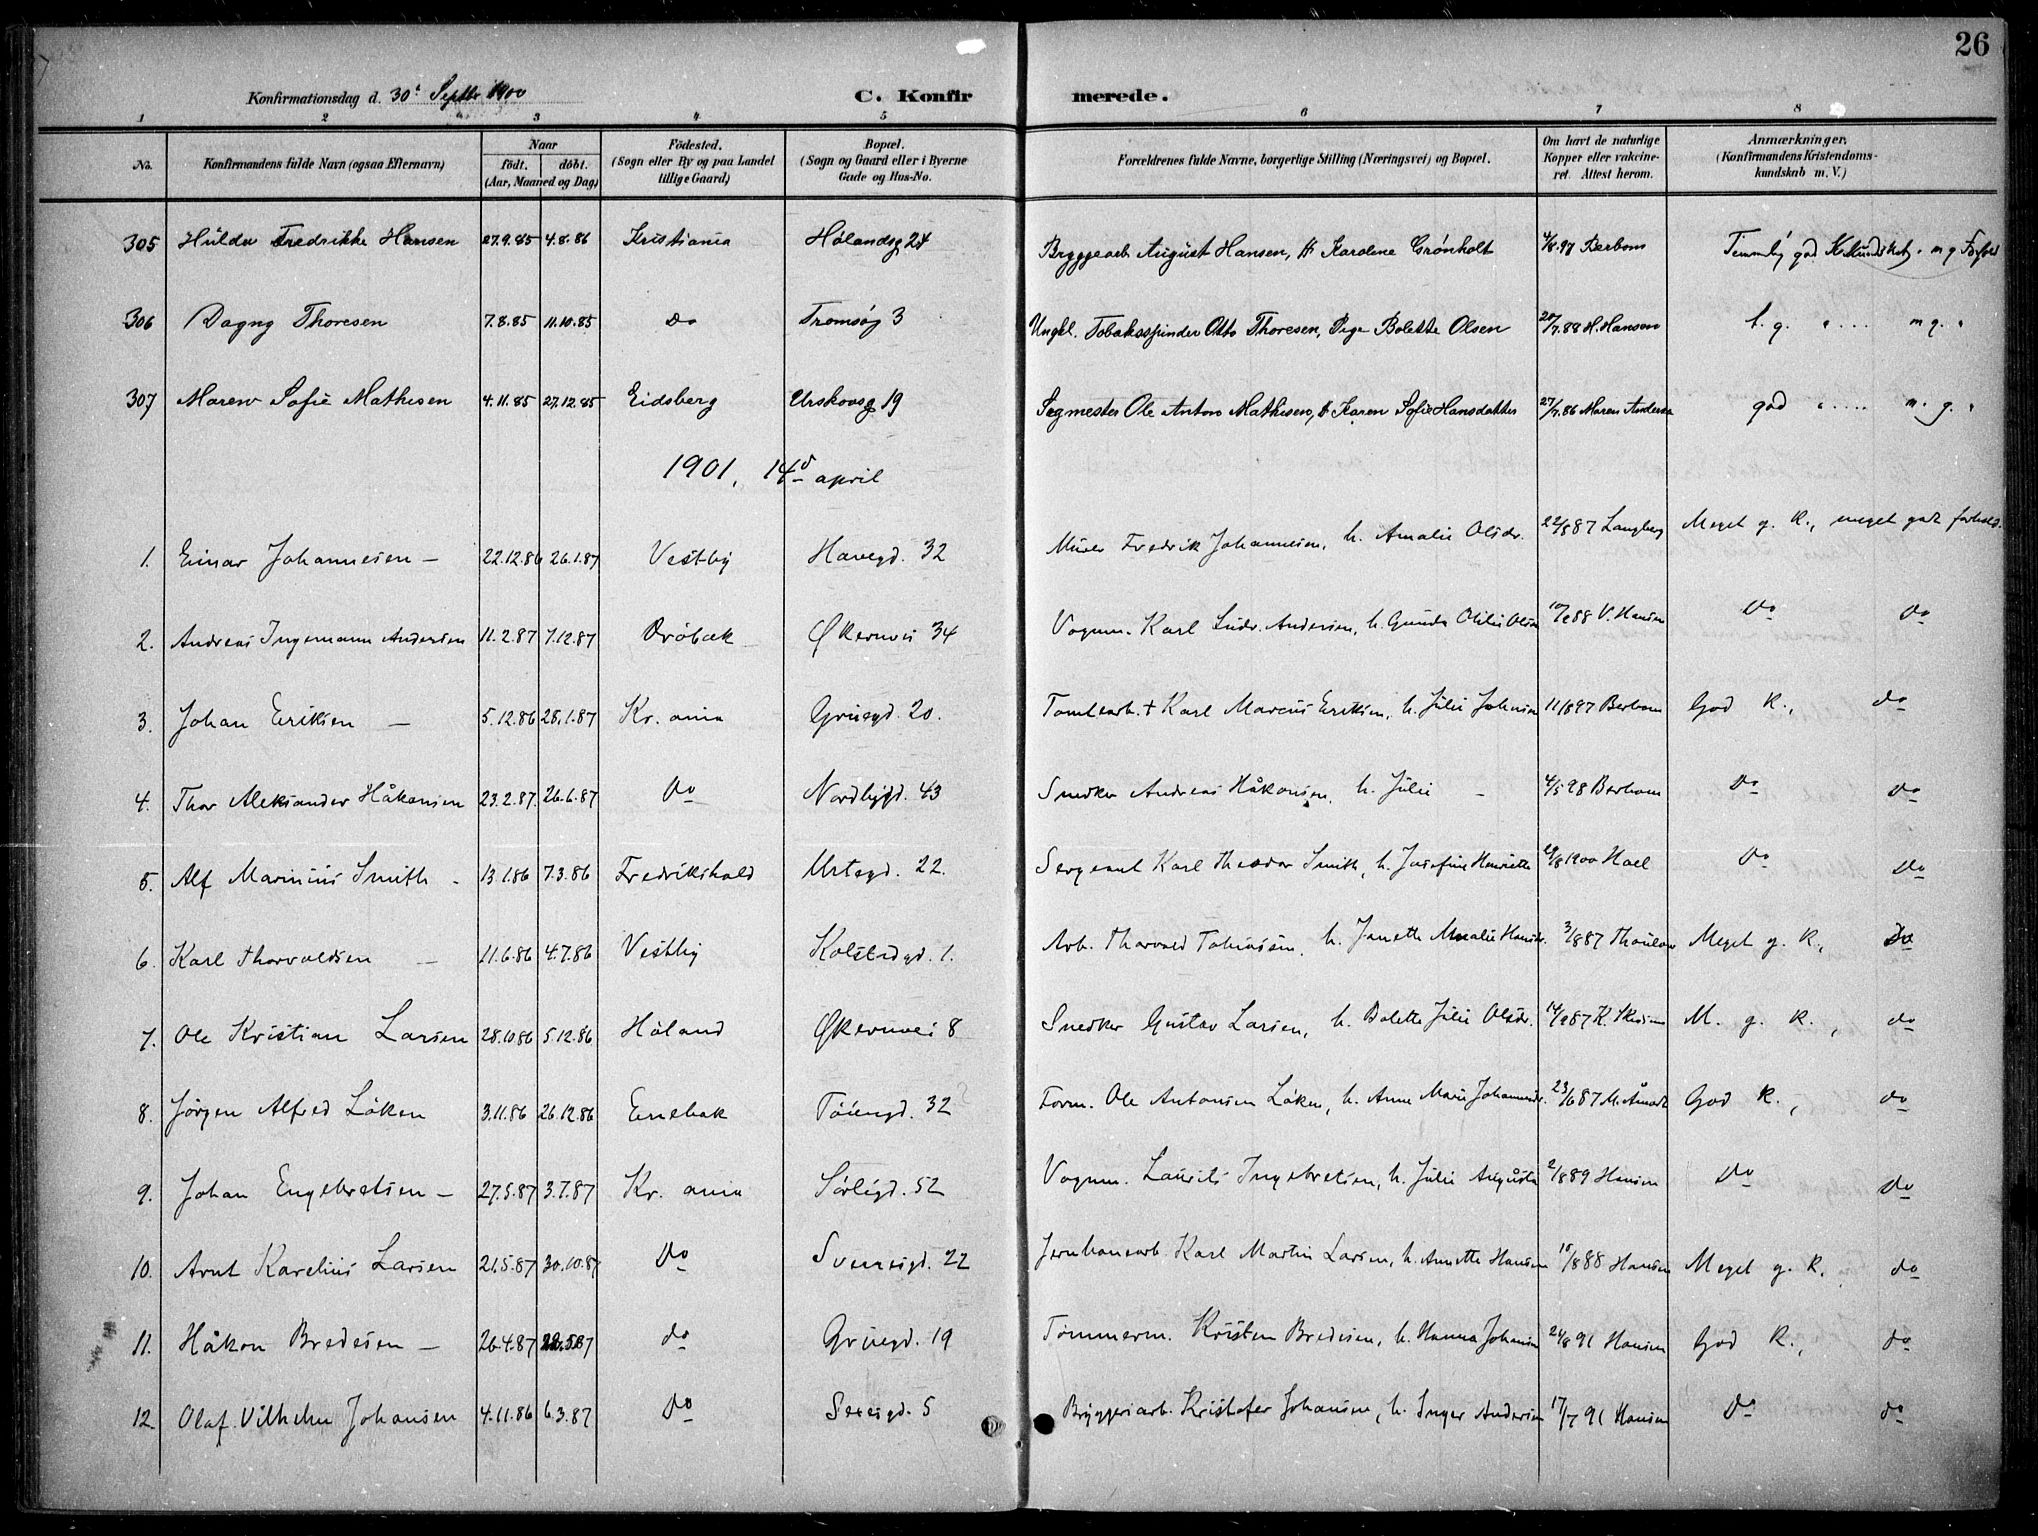 26
Konfirmationsdag d. 30t Septbr 1900 C. Konfirmerede.
1 2 3 4 5 6 7 8
No. Konfirmandens fulde Navn (ogsaa Efternavn) Naar födt. döbt. (Aar, Maaned og Dag) Födested. (Sogn eller By og paa Landet tillige Gaard) Bopæl. (Sogn og Gaard eller i Byerne Gade og Hus-No. Forældrenes fulde Navne, borgerlige Stilling (Næringsvei) og Bopæl. Om havt de naturlige Kopper eller vakcineret. Attest herom. Anmærkninger. (Konfirmandens Kristendomskundskab m. V.)
305 Hulda Fredrikke Hansen 27.9.85 4.8.86 Kristiania Hølandsg 24 Bryggearb August Hansen, H Karoline Grønholt 4/8.97 Berbom Temmelig god K.kundskab. m g Forhold
306 Dagny Thoresen 7.8.85 11.10.85 Do Tromsög 3 Ungkl. Tobaksspinder Otto Thoresen, Pige Bolette Olsen 20/7.88 H. Hansen t. g. " .... m g. "
307 Maren Sofie Mathisen 4.11.85 27.12.85 Eidsberg Urskovsg 19 Sagmester Ole Anton Mathisen, H Karen Sofie Hansdatter 27/7.86 Maren Andersen god " .... m. g. "
1901, 14d april
1. Einar Johannesen — 22.12.86 26.1.87 Vestby Havegd. 32 Murer Fredrik Johannesen, h. Amalie Olsdr. 22/8 87 Langberg Meget g. K., meget godt forhold.
2. Andreas Ingemann Andersen 11.2.87 7.12.87 Dröbak Økernvei 34 Vognm. Karl Ludv. Andersen, h. Gunda Otilie Olsen 88 V. Hansen Do Do
3. Johan Eriksen — 5.12.86 28.1.87 Kr. ania Gruegd. 20. Tomtearb. + Karl Marcus Eriksen, h. Julie Johnsen 11/8 97 Berbom God K., do
4. Thor Aleksander Håkonsen 23.2.87. 26.6.87 Do Nordbygd. 43 Snedker Andreas Håkonsen, h. Julie — 4/5 98 Berbom Do Do
5. Alf Marinius Smith - 13.1.86 7.3.86 Fredrikshald Urtegd. 22. Sergeant Karl Theodor Smith, h. Josefine Henriette 29/8 1900 Hoel Do Do
6. Karl Thorvaldsen — 11.6.86 4.7.86 Vestby Kolstadgd. 1. Arb. Thorvald Tobiassen, h. Janette Amalie Hansdr. 3/8 87 Thoulow Meget g. K., Do
7. Ole Kristian Larsen 28.10.86 5.12.86 Höland Økernvei 8 Snedker Gustav Larsen, h. Bolette Julie Olsdr. 14/9 87 K. M. g. K., do
8. Jørgen Alfred Løken 3.11.86 26.12.86 Enebak Töiengd. 32 Form. Ole Antonsen Löken, h. Anne Marie Johannesdr. 23/6 87 M. God K., do
9. Johan Engebretsen — 27.5.87 3.7.87 Kr. ania Sörligd. 52 Vognm. Laurits Ingebretsen, h. Julie Augusta 2/8 89 Hansen Do Do
10. Arnt Karelius Larsen 21.5.87 30.10.87 Do Sverresgd. 22 Jernbanearb. Karl Martin Larsen, h. Annette Hansen 15/8 88 Hansen Meget g. K. do
11. Håkon Bredesen — 26.4.87 28.5.87 do Gruegd. 19 Tömmerm. Kristen Bredesen, h. Hanna Johansen 24/8 91 Hansen God K., do
12. Olaf Vilhelm Johansen 4.11.86 6.3.87 Do Sexesgd. 5 Bryggeriarb. Kristofer Johansen, h. Inger Andersen 17/7 91 Hansen Do do